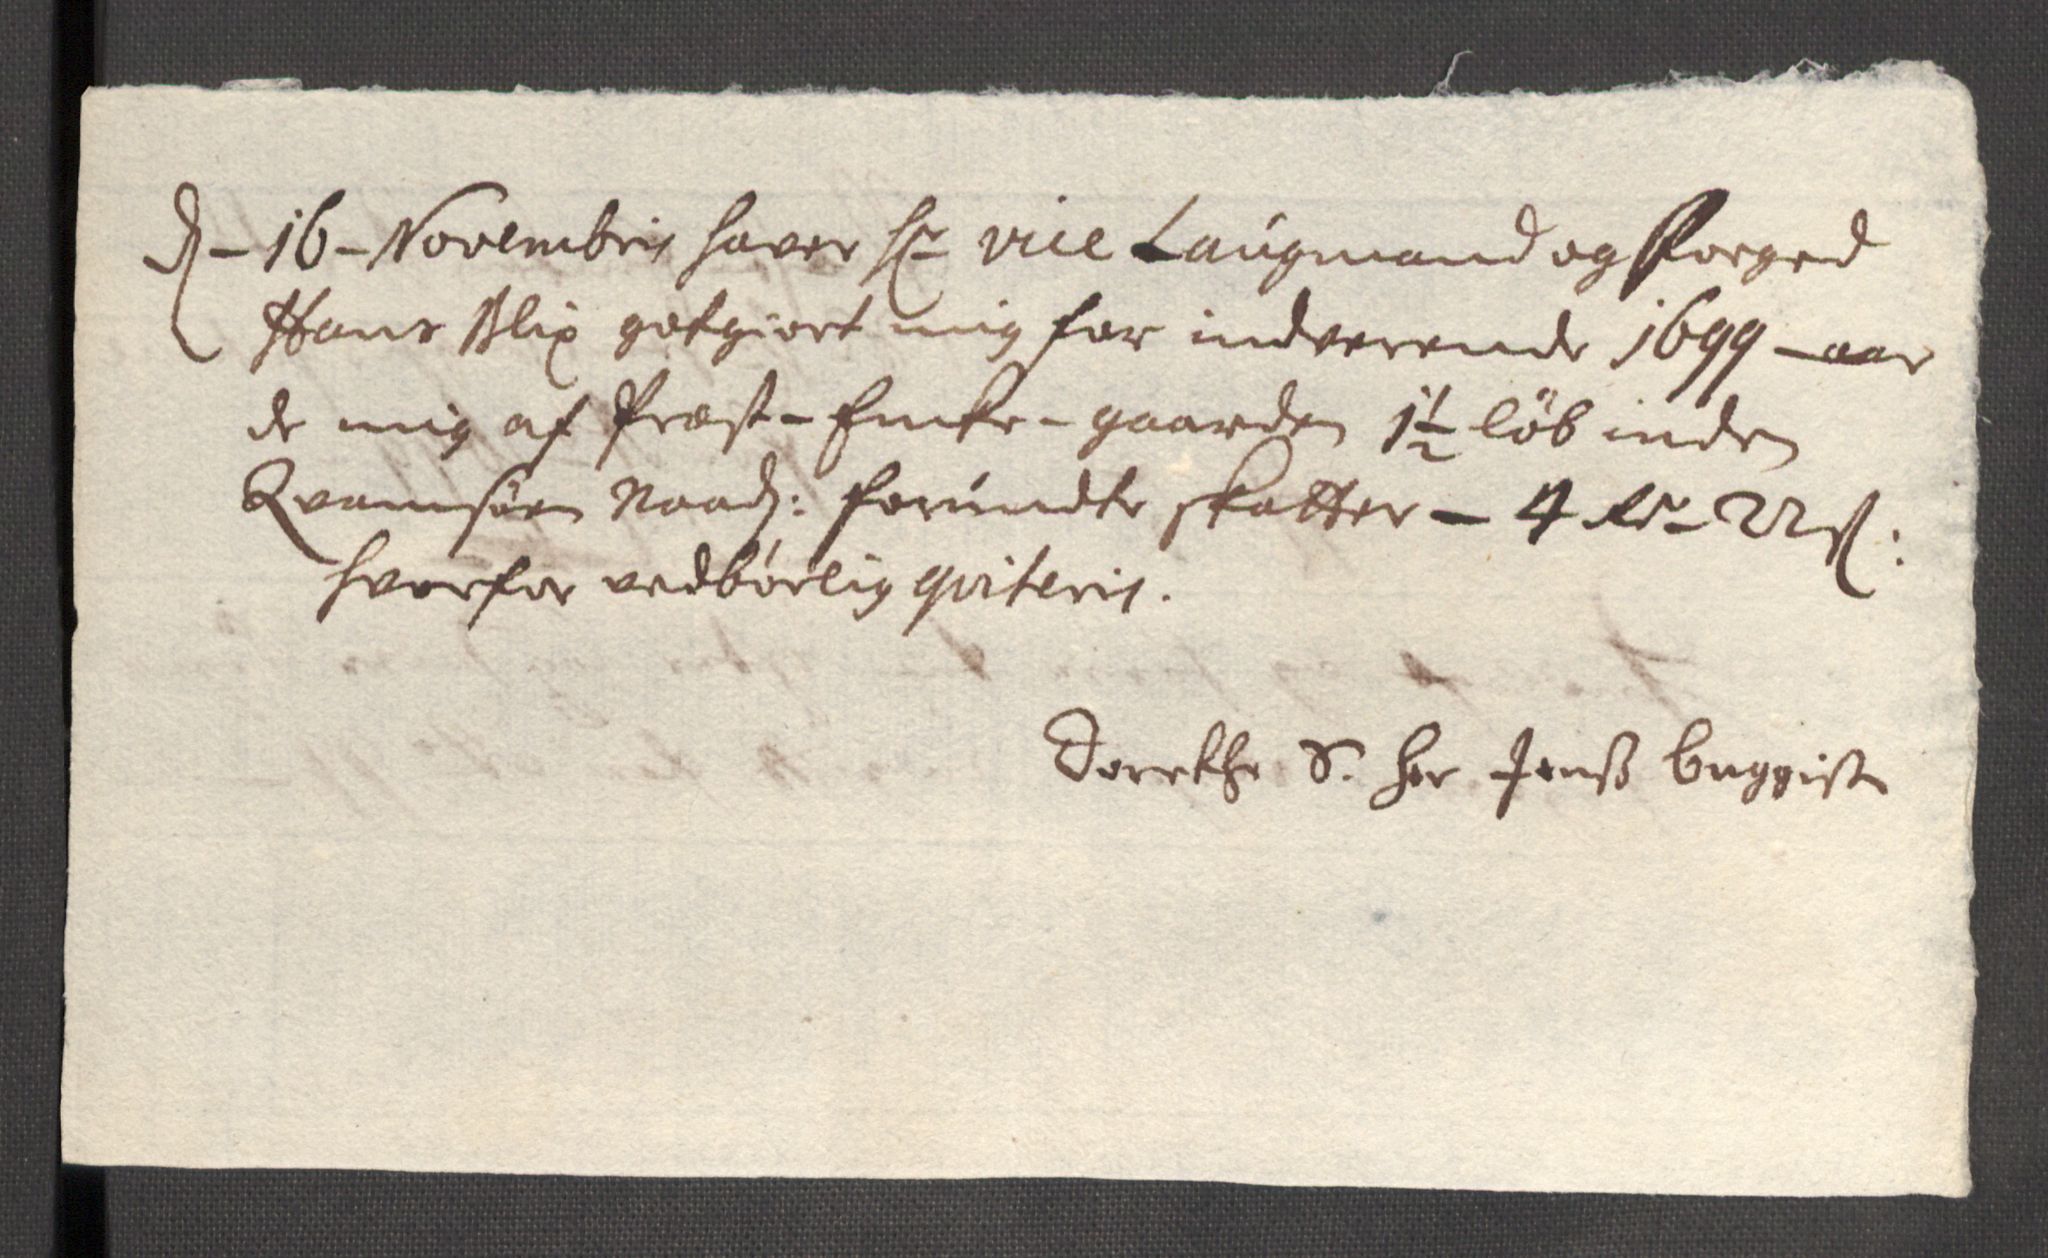 d – 16 – Novembris haver hr vice Laugmand og Foeged
Hans Blix gotgiort mig for indverende 1699 – aar
de mig af Præst – Encke – gaarden 1½ löb inden
Qvamsöen Naad: forundte skatter – 4 Rdr – 22 ß:
hvorfor vedbörlig qviteris.
Dorethe S. Her Jenß buggisn